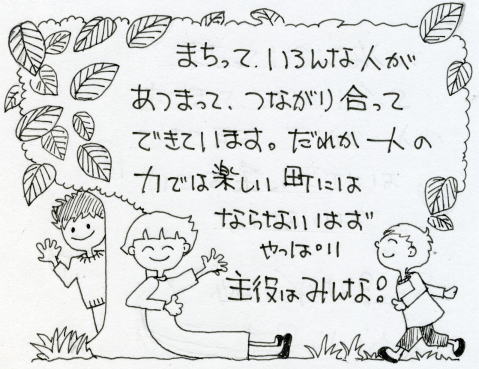 まちって、いろんな人が
あつまって、つながり合って
できています。だれか一人の
力では楽しい町には
ならないはず
やっぱり
主役はみんな!